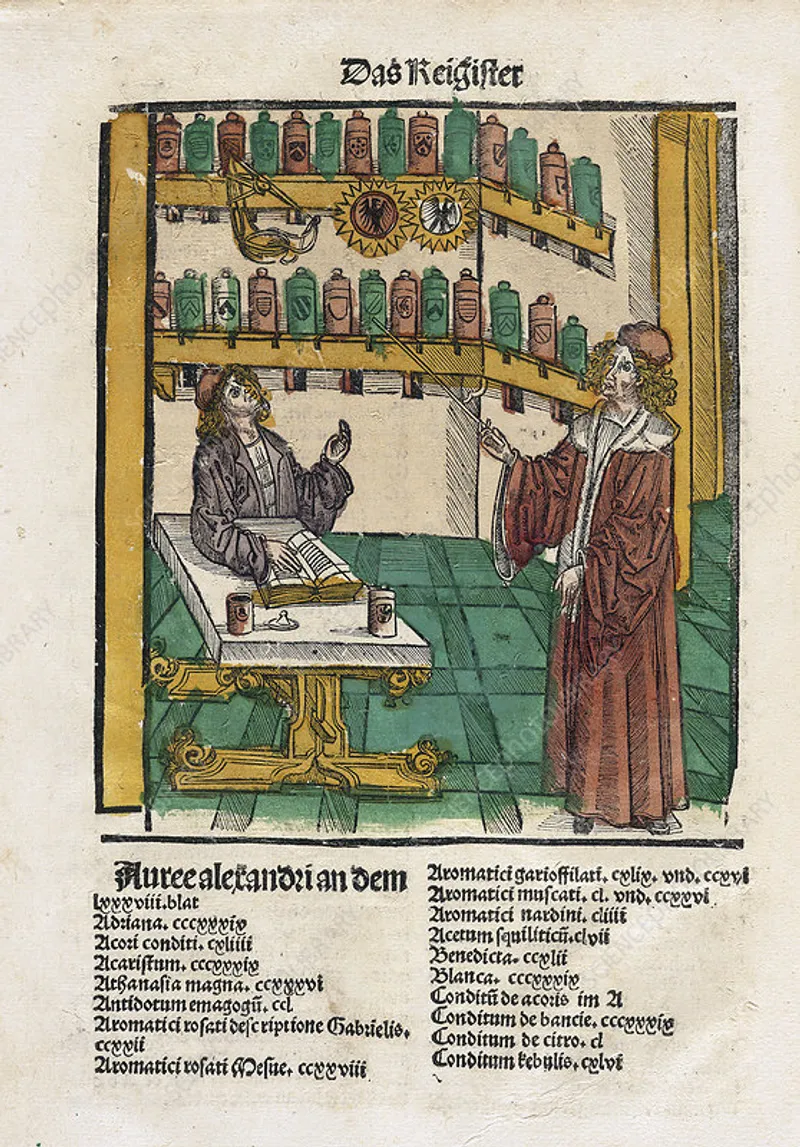 Das Reigister
Auree alexandri an dem
lxxxviii.blat
Adriana. cccxxxix
Acori conditi. cxliiii
Acaristum. cccxxxix
Athanasia magna. ccxxxvi
Antidotum emagogū. ccl
Aromatici rosati descriptione Gabrielis.
ccxxii
Aromatici rosati Mesue. ccxxviii
Aromatici garioffilati. cxlix. vnd. ccxvi
Aromatici muscati. cl. vnd. ccxxvi
Aromatici nardini. cliiii
Acetum squiliticū. clvii
Benedicta. ccxlii
Blanca. cccxxxix
Conditū de acoris im A
Conditum de bancie. cccxxxix
Conditum de citro. cl
Conditum kebulis. cxlvi